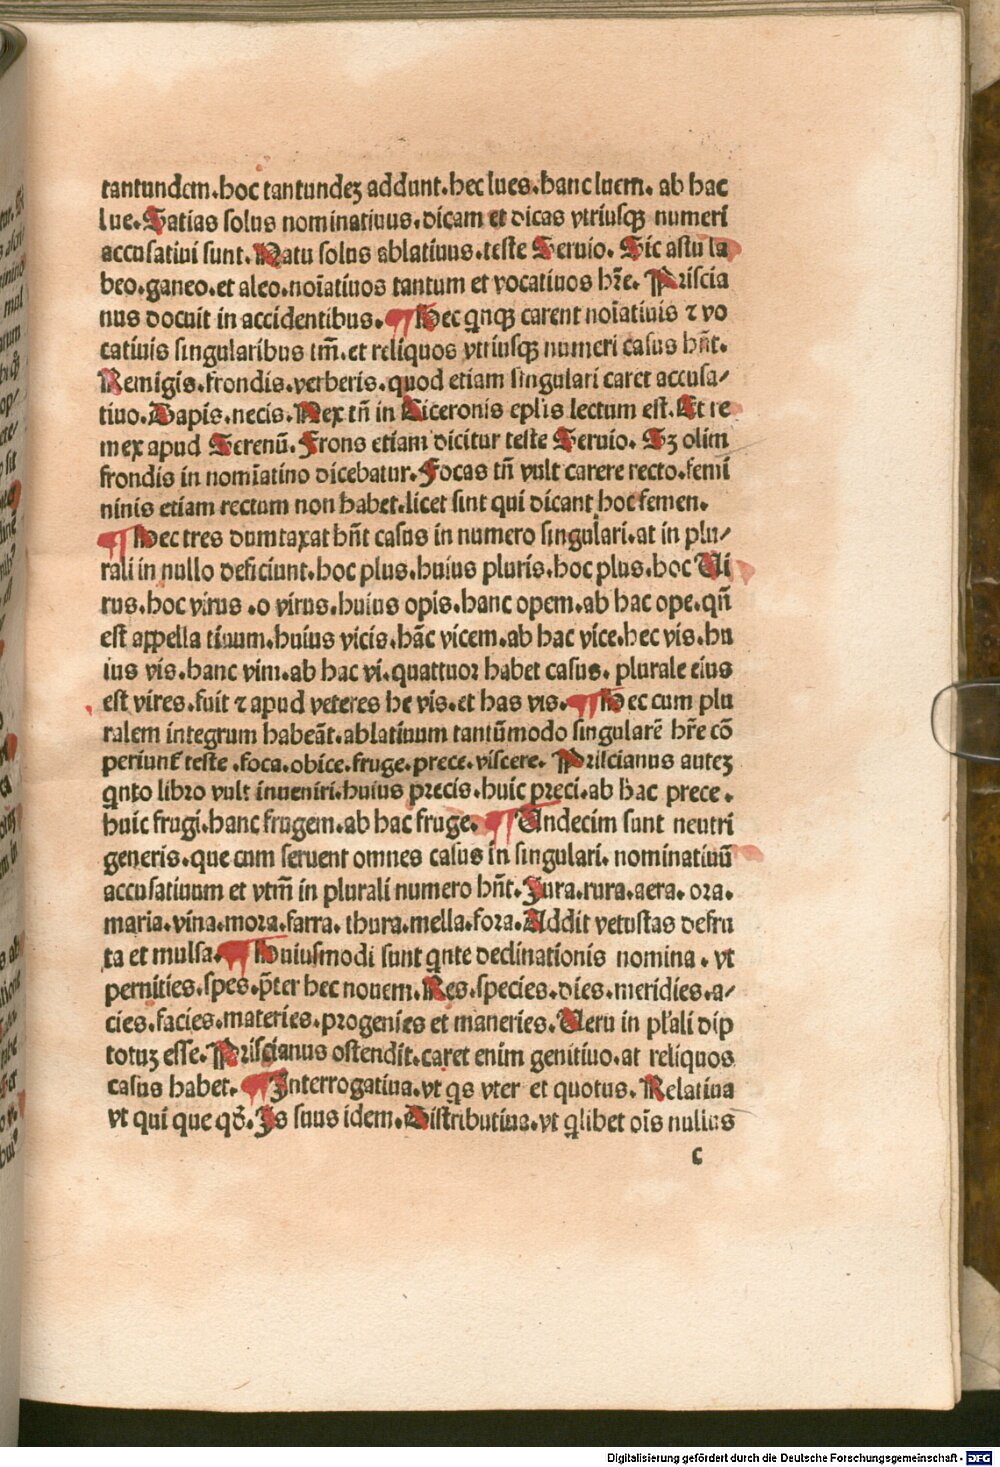 tantundem.hoc tantundeʒ addunt.hec lues.hanc luem. ab hac
lue.Satias solus nominatiuus.dicam et dicas vtriusqꝫ numeri
accusatiui sunt.Natu solus ablatiuus.teste Seruio. Sic astu la
beo.ganeo.et aleo.noīatiuos tantum et vocatiuos hr̄e. Priscia
nus docuit in accidentibus. ¶Hec qͥnqꝫ carent noīatiuis ⁊ vo
catiuis singularibus tm̄.et reliquos vtriusqꝫ numeri casus hn̄t.
Remigis.frondis.verberis.quod etiam singulari caret accusa/
tiuo.Dapis.necis.Rex tn̄ in Ciceronis ep̄lis lectum est.Et re
mex apud Serenū.Frons etiam dicitur teste Seruio. Sʒ olim
frondis in nomīatiuo dicebatur.Focas tn̄ vult carere recto.femi
ninis etiam rectum non habet.licet sint qui dicant hoc femen.
¶Hec tres dumtaxat hn̄t casus in numero singulari.at in plu/
rali in nullo deficiunt.hoc plus.huius pluris.hoc plus.hoc Ui
rus.hoc virus .o virus.huius opis.hanc opem.ab hac ope.qn̄
est appella tiuum.huius vicis.hāc vicem.ab hac vice.hec vis.hu
ius vis.hanc vim.ab hac vi.quattuor habet casus. plurale eius
est vires.fuit ⁊ apud veteres he vis.et has vis.¶Hec cum plu
ralem integrum habeāt.ablatiuum tantūmodo singularē hr̄e cō
periunt̄ teste .foca.obice.fruge.prece.viscere. Priscianus auteʒ
qͥnto libro vult inueniri.huius precis.huic preci.ab hac prece .
huic frugi.hanc frugem.ab hac fruge. ¶Undecim sunt neutri
generis.que cum seruent omnes casus in singulari. nominatiuū
accusatiuum et vtm̄ in plurali numero hn̄t.Jura.rura.aera. ora.
maria.vina.mora.farra. thura.mella.fora.Addit vetustas defru
ta et mulsa.¶Huiusmodi sunt qͥnte declinationis nomina . vt
pernities.spes.p̄ter hec nouem.Res.species.dies.meridies.a/
cies.facies.materies.progenies et maneries.Ueru in pl̄ali dip
totuʒ esse.Priscianus ostendit.caret enim genitiuo.at reliquos
casus habet. ¶Interrogatiua.vt qͥs vter et quotus. Relatiua
vt qui que qd̄.Is suus idem.Distributiua.vt qͥlibet oīs nullus
c
Digitalisierung gefördert durch die Deutsche Forschungsgemeinschaft - DFG